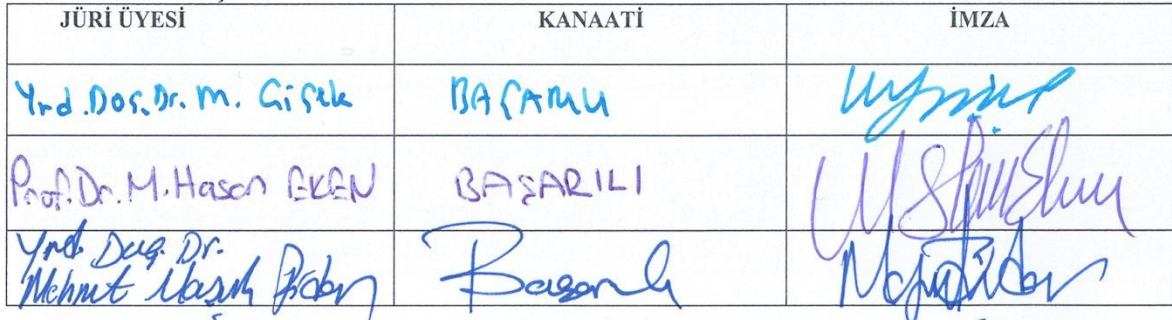 JÜRİ ÜYESİ KANAATİ İMZA
Yrd.Doç.Dr. M. Çiçek BAŞARILI
Prof.Dr.M.Hasan EKEN BAŞARILI
Yrd. Doç. Dr.
Mehmet Başarılı